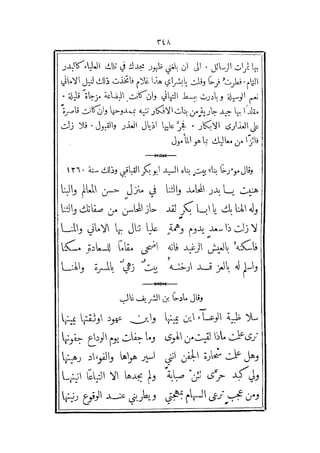 ٣٤٨
بها ثمرات الرسائل ٠ الى ان بلغني ظهور مجدك في تلك العلياء كالبدر
التمام ٠ فطرت فرحا وقلت يابشراي هذا غلام فاتخذت ذلك لنيل الاماني
نعم الوسيلة وبادرت ببسط التهاني وان كانت البضاعة مزجاة قليلة ٠
مقلدا بها جيد جارية من بنات الافكار تتيه بمدوحها وان كانت قاصرة
على العذارى الابكار ٠ فجر عليها اذيال العذر والقبول ٠ فلا زلت
فائزا من معاليك بما هو المأمول
وقال مؤرخا بناء بيت بناه السيد ابو بكر القباقبي وذلك سنة ١٢٦٠
هنيت يا بدر المحامد والثنا في منزل حسن المعالم والبنا
وله الهنا بك يا ابا بكر لقد حاز المحاسن من صفاتك والثنا
لا زلت ذا سعد يدوم وهمة عليا تنال بها الاماني والمنا
فاسكنه بالعيش الرغيد فانه اضحى مقاما للسعادة مسكنا
واسلم له بالعز قد ارخته بيت زهي بالمسرة والهنا
وقال مادحا بن الشريف غالب
سلا ظبية الوعساء اين يمينها واين عهود اوثقتها يمينها
ترى علمت ماذا لقيت من الهوى وما جفلت يوم الوداع جفونها
وهل علمت سحارة الجفن انني اسير هواها والفوءاد رهينها
ولي كبد حرى تئن صبابة ولم يجدها الا التياعا انينها
ومن عجب ترمى السهام بمهجتي ويطربني عند الوقوع رنينها